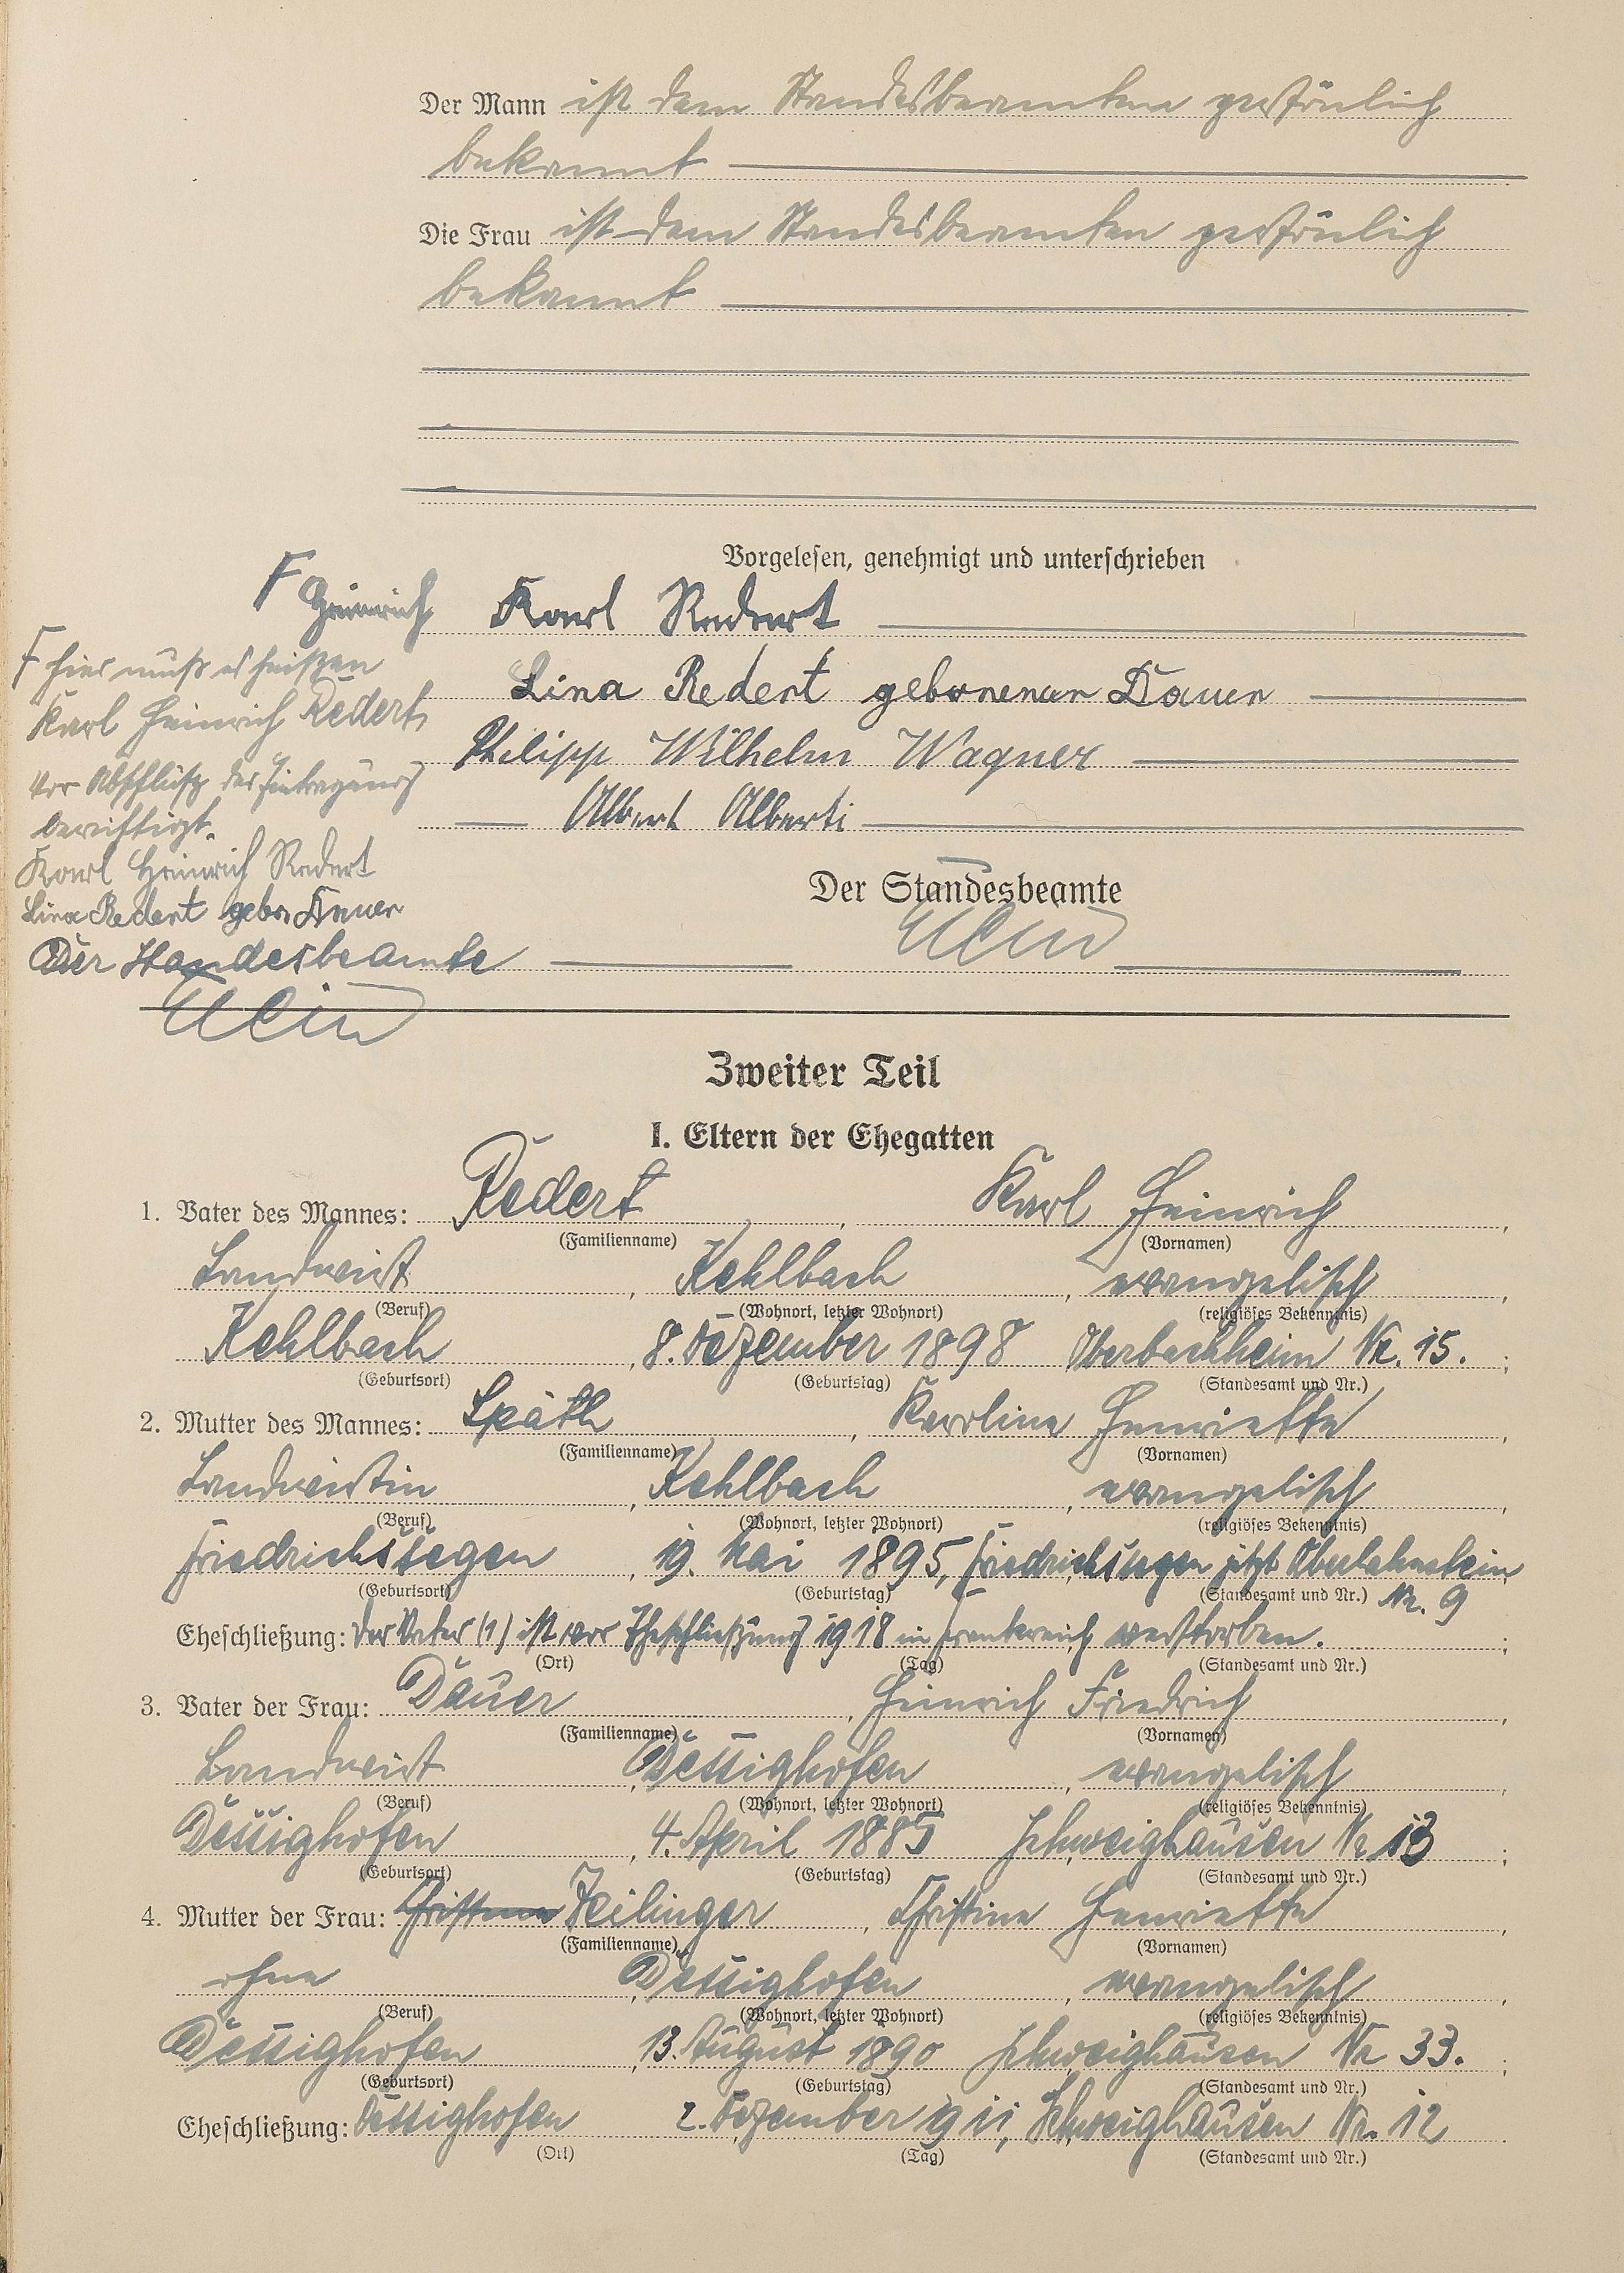 Der Mann ist dem Standesbeamten persönlich
bekannt
Die Frau ist dem Standesbeamten persönlich
bekannt
Vorgelesen, genehmigt und unterschrieben
F Heinrich Karl Redert
F hier muß es heißen
Karl Heinrich Redert,
Vor Abschluß der Eintragung
berichtigt.
Karl Heinrich Redert
Lina Redert geb. Dauer
Der Standesbeamte
Lina Redert geborenen Dauer
Philipp Wilhelm Wagner
Albert Alberti
Der Standesbeamte
Zweiter Teil
I. Eltern der Ehegatten
1. Vater des Mannes: Redert, Karl Heinrich,
(Familienname) (Vornamen)
Landwirt, Kehlbach, evangelisch,
(Beruf) (Wohnort, letzter Wohnort) (religiöses Bekenntnis)
Kehlbach, 8. Dezember 1898 Oberbachheim Nr. 15. ;
(Geburtsort) (Geburtstag) (Standesamt und Nr.)
2. Mutter des Mannes: Späth, Karoline Henriette,
(Familienname) (Vornamen)
Landwirtin, Kehlbach, evangelisch,
(Beruf) (Wohnort, letzter Wohnort) (religiöses Bekenntnis)
Friedrichssegen, 19. Mai 1895, Friedrichssegen jetzt Oberlahnstein
(Geburtsort) (Geburtstag) (Standesamt und Nr.) Nr. 9
Eheschließung: Der Vater (1) ist vor Eheschließung 1918 in Frankreich verstorben. ;
(Ort) (Tag) (Standesamt und Nr.)
3. Vater der Frau: Dauer, Heinrich Friedrich,
(Familienname) (Vornamen)
Landwirt, Dessighofen, evangelisch,
(Beruf) (Wohnort, letzter Wohnort) (religiöses Bekenntnis)
Dessighofen, 4. April 1885 Schweighausen Nr 13 ;
(Geburtsort) (Geburtstag) (Standesamt und Nr.)
4. Mutter der Frau: Zeilinger, Christine Henriette,
(Familienname) (Vornamen)
ohne, Dessighofen, evangelisch,
(Beruf) (Wohnort, letzter Wohnort) (religiöses Bekenntnis)
Dessighofen, 13. August 1890 Schweighausen Nr 33. ;
(Geburtsort) (Geburtstag) (Standesamt und Nr.)
Eheschließung: Dessighofen 2. Dezember 1911, Schweighausen Nr. 12
(Ort) (Tag) (Standesamt und Nr.)